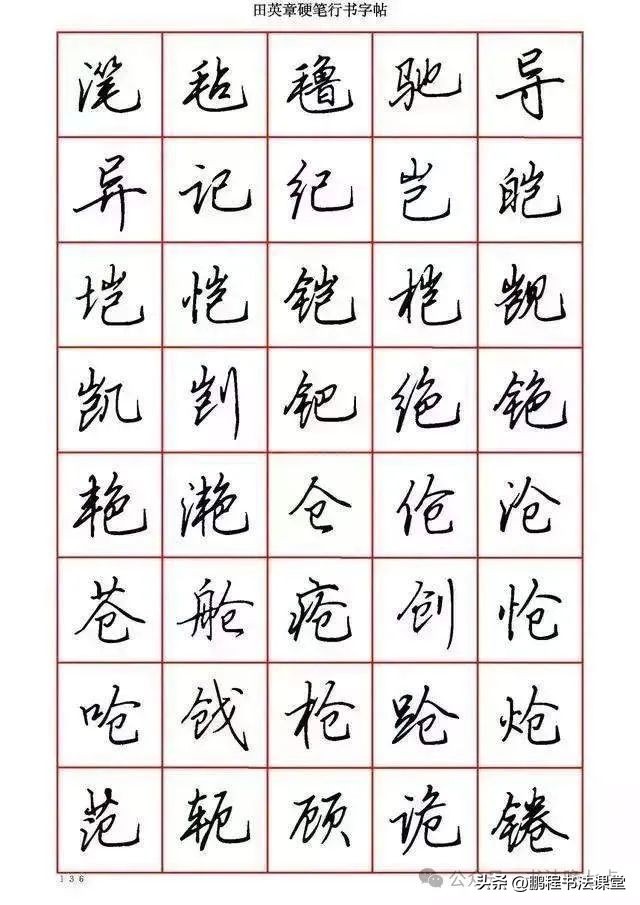 田英章硬笔行书字帖
滗 毡 氇 驰 导
异 记 纪 岂 皑
垲 恺 铠 桤 觊
凯 剀 钯 绝 铯
艳 滟 仓 伧 沧
苍 舱 疮 创 怆
呛 戗 枪 跄 炝
范 轭 顾 诡 锩
136
头条 @鹏程书法课堂